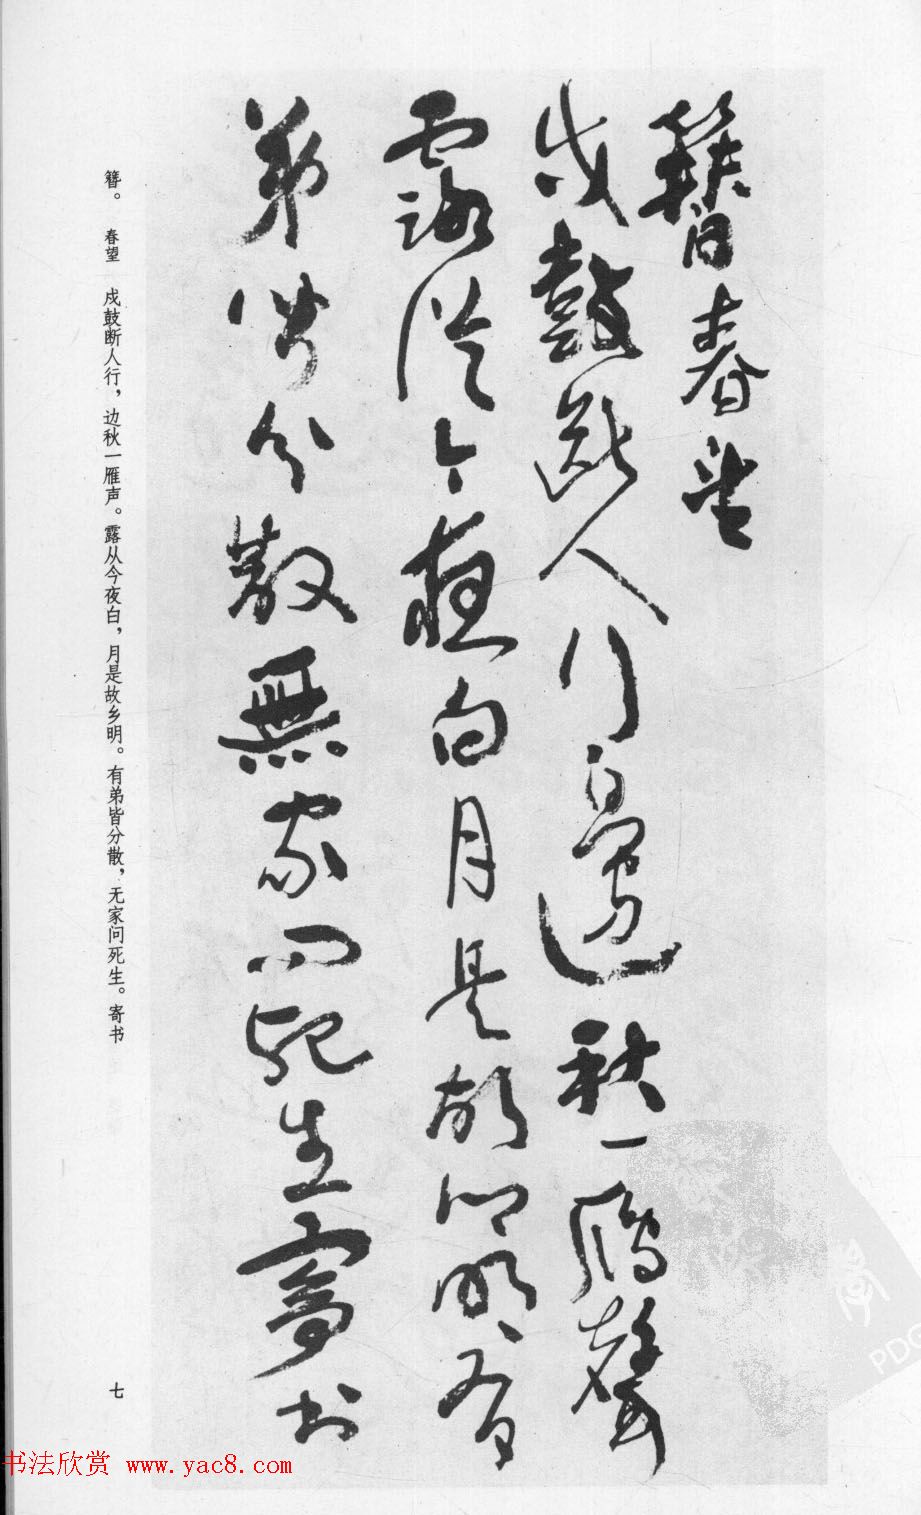 簪春望
戍鼓斷人行邊秋一鴈聲
露從今夜白月是故鄉明有
弟皆分散無家問死生寄書
簪。 春望 戍鼓断人行，边秋一雁声。露从今夜白，月是故乡明。有弟皆分散，无家问死生。寄书
七
书法欣赏 www.yac8.com